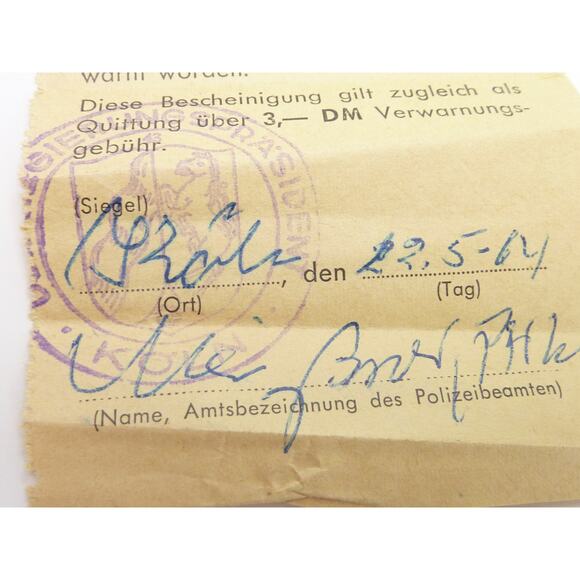 warnt worden.
Diese Bescheinigung gilt zugleich als
Quittung über 3,— DM Verwarnungs-
gebühr.
REGIERUNGSPRÄSIDENT
KÖLN
(Siegel)
, den 22.5-64
(Ort) (Tag)
(Name, Amtsbezeichnung des Polizeibeamten)